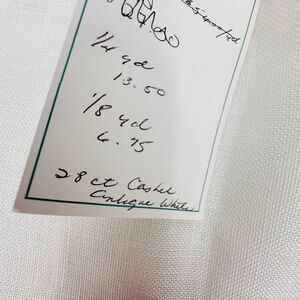 1/4 yd
13.50
1/8 yd
6.75
28 ct Cashel
Antique White